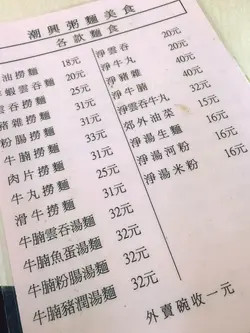 潮興粥麵美食
各款麵食
油撈麵 18元
蝦雲吞麵 20元
雲吞撈麵 25元
豬雜撈麵 31元
粉腸撈麵 31元
牛腩撈麵 33元
肉片撈麵 31元
牛丸撈麵 25元
滑牛撈麵 31元
牛腩雲吞湯麵 32元
牛腩魚蛋湯麵 32元
牛腩粉腸湯麵 32元
牛腩豬潤湯麵 32元
淨雲吞 20元
淨牛丸 20元
淨豬雜 40元
淨牛腩 40元
淨雲吞牛丸 32元
郊外油菜 15元
淨湯生麵 16元
淨湯河粉 16元
淨湯米粉 16元
外賣碗收一元